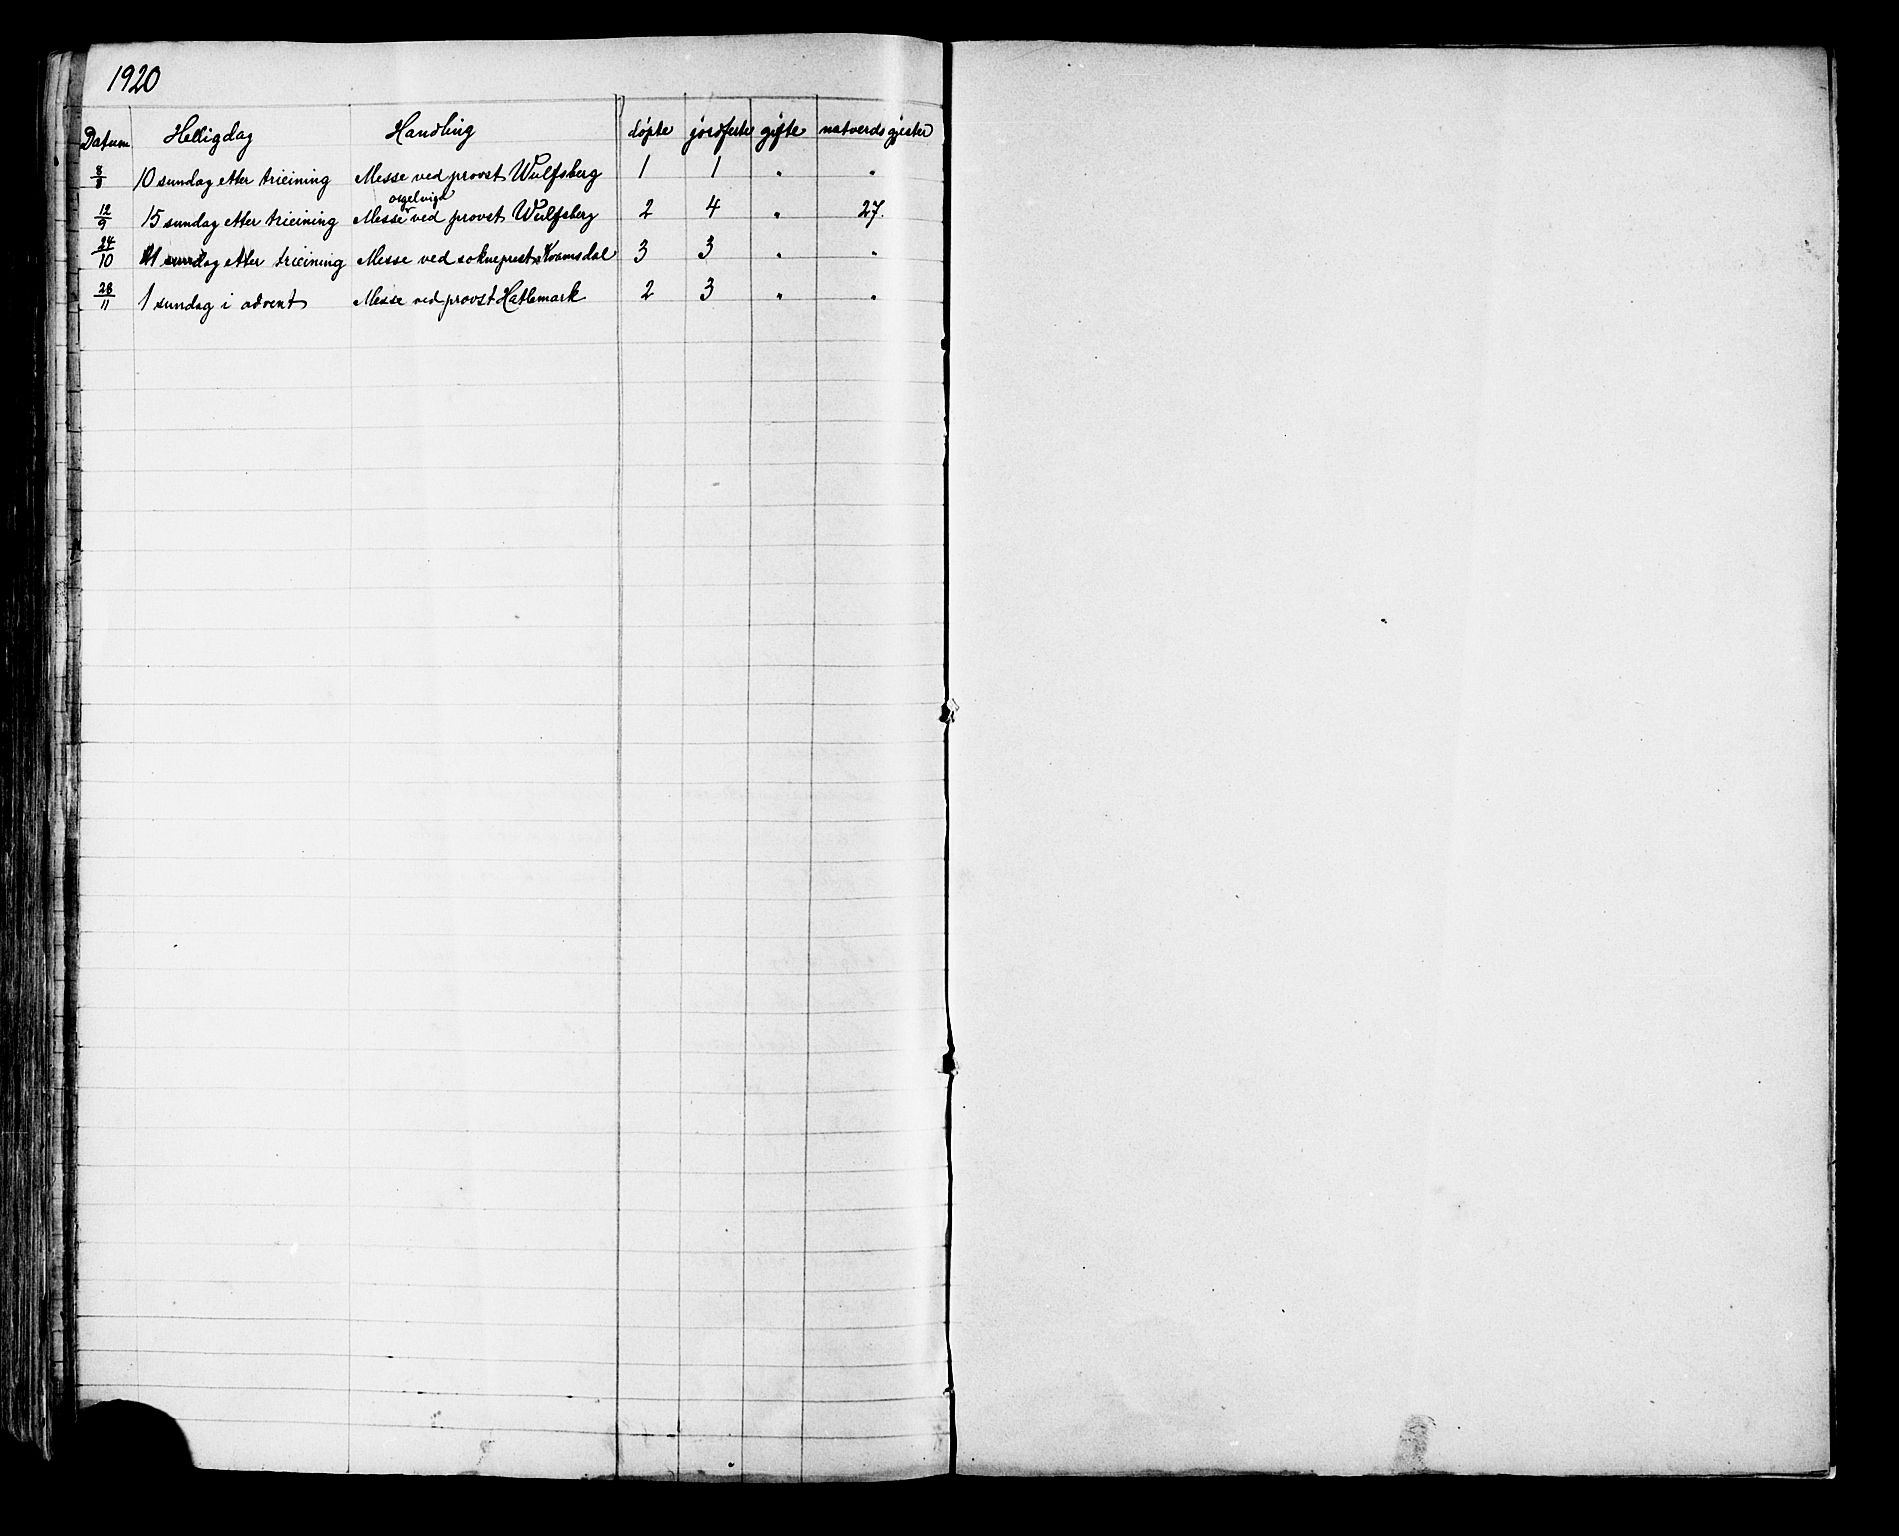 1920
Datum Helligdag Handling døpte jordfeste gifte natverdsgjester
8/8 10 sundag etter trieining Messe ved provst Wulfsberg 1 1 " "
orgelvigsl
12/9 15 sundag etter trieining Messe ved provst Wulfsberg 2 4 " 27.
24/10 21 sundag etter trieining Messe ved sokneprest Kvamsdal 3 3 " "
28/11 1 sundag i advent Messe ved provst Hatlemark 2 3 " "